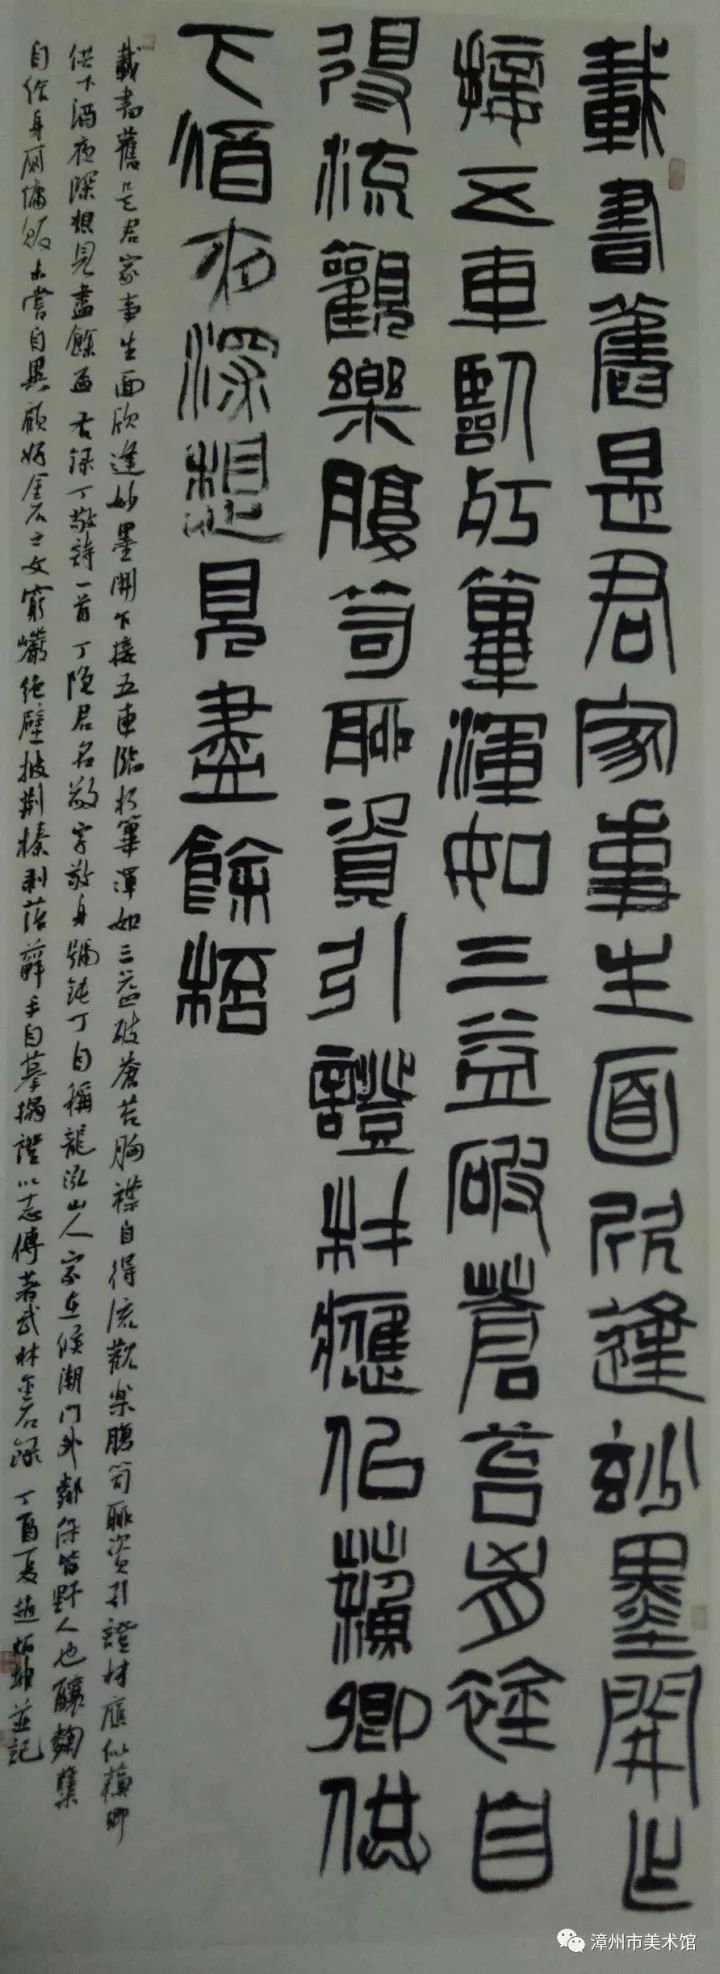 載書舊是君家事生面欣逢妙墨開乍
接五車臨朽簞渾如三益破蒼苔胸襟自
得流觀樂腹笥聊資引證材應似蘇卿供
下酒夜深想見盡餘杯
載書舊是君家事生面欣逢妙墨開乍接五車臨朽簞渾如三益破蒼苔胸襟自得流觀樂腹笥聊資引證材應似蘇卿
供下酒夜深想見盡餘杯右錄丁敬詩一首丁隱君名敬字敬身號鈍丁自稱龍泓山人家在候潮門外鄰保皆野人也釀麴糵
自給身厠傭販未嘗自異顧好金石之文窮巖絕壁披荊榛剥落蘚手自摹搨證以志傳著武林金石錄丁酉夏趙並記
漳州市美术馆